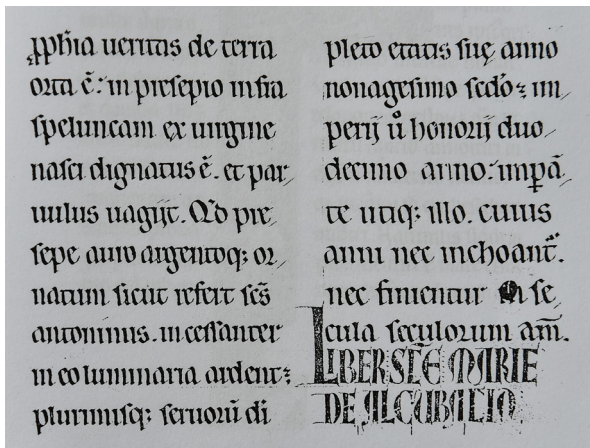 ꝓphia ueritas de terra
orta ē: in presepio infra
speluncam ex uirgine
nasci dignatus ē. et par
uulus uagijt. Qd pre
sepe auro argentoq; or
natum sicut refert scs
antoninus. incessanter
in eo luminaria ardent:
plurimisq; seruorū di
pleto etatis sue anno
nonagesimo scdo: im
perij u honorij duo
decimo anno: impā
te utiq; illo. cuius
anni nec inchoant.
nec finientur in se
cula seculorum am̄.
LIBER SCE MARIE
DE ALCUBACIA